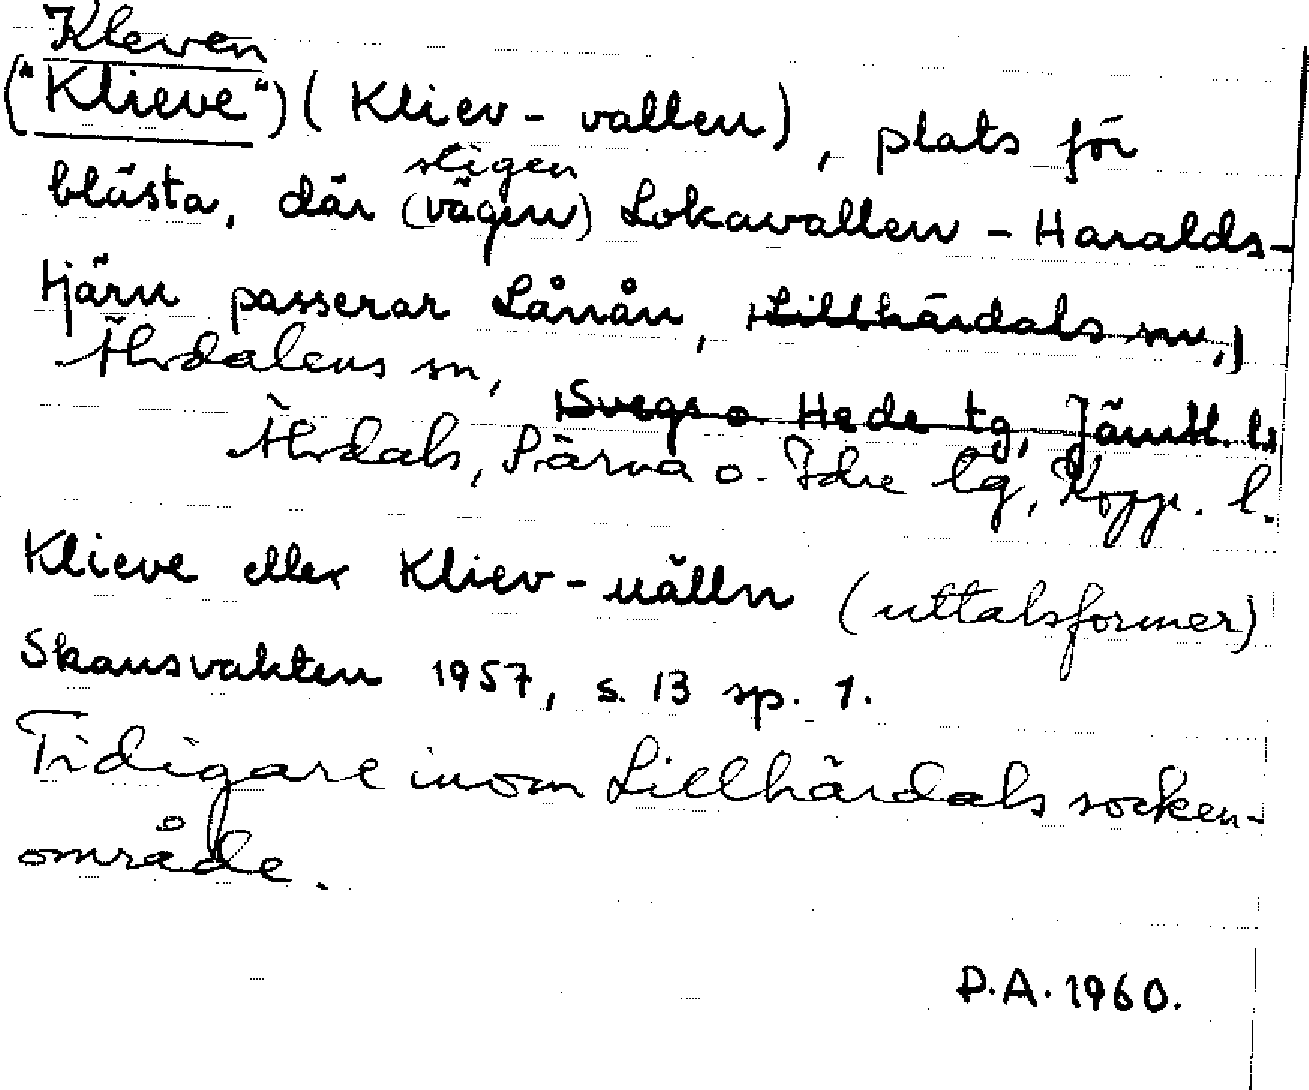 Kleven
("Klieve") (Kliev-vallen), plats för
blästa, där stigen (vägen) Lokavallen - Haralds-
tjärn passerar Lånån, Lillhärdals sn,
Älvdalens sn, Svegs o. Hede tg, Jämtl. l.
Älvdals, Särna o. Idre tg, Kopp. l.
Klieve eller Kliev-uälln (uttalsformer)
Skansvakten 1957, s. 13 sp. 1.
Tidigare inom Lillhärdals socken-
område.
D.A. 1960.